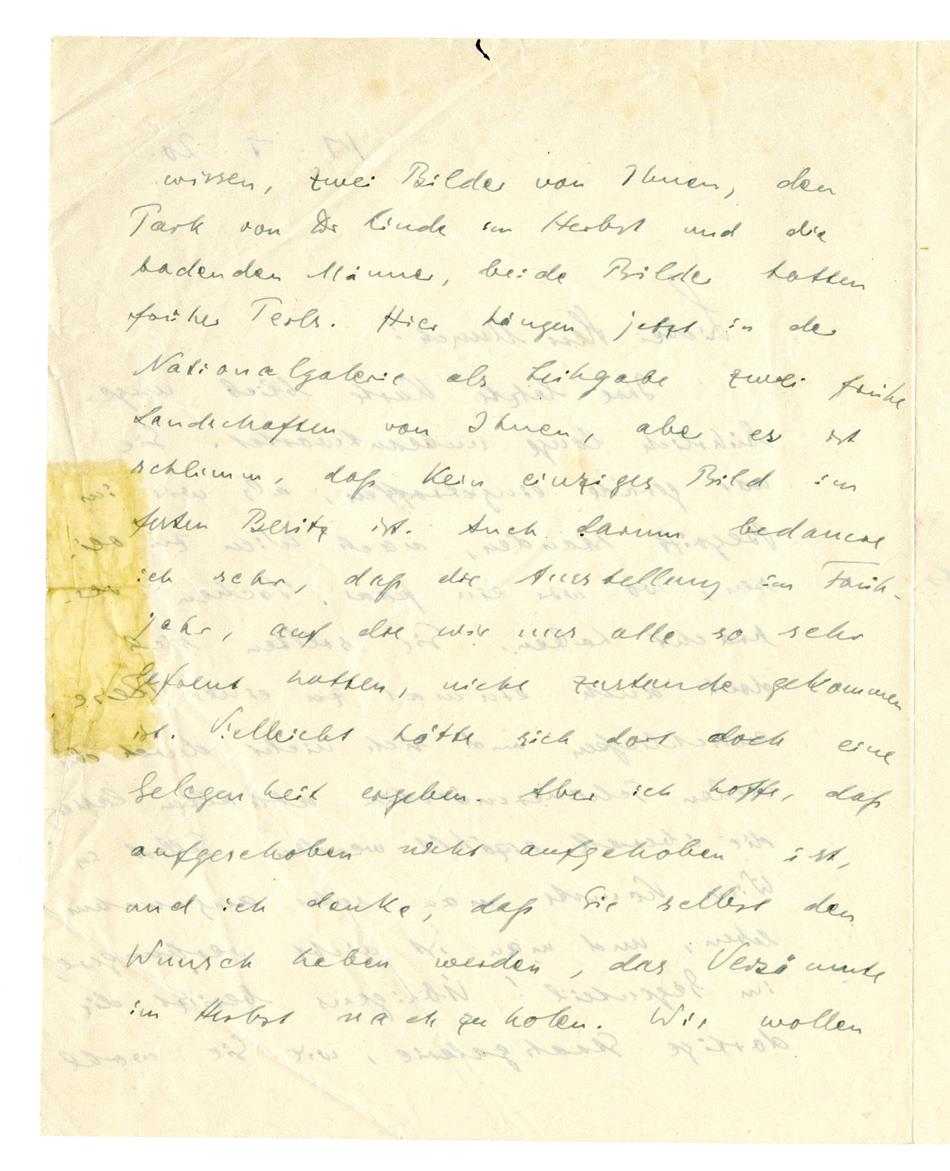 wissen, zwei Bilder von Ihnen, den
Park von Dr Linde im Herbst und die
badenden Männer, beide Bilder hatten
früher Perls. Hier hängen jetzt in der
Nationalgalerie als Leihgabe zwei frühe
Landschaften von Ihnen, aber es ist
schlimm, daß kein einziges Bild im
festen Besitz ist. Auch darum bedaure
ich sehr, daß die Ausstellung im Früh-
jahr, auf die wir uns alle so sehr
gefreut hatten, nicht zustande gekommen
ist. Vielleicht hätte sich dort doch eine
Gelegenheit ergeben. Aber ich hoffe, daß
aufgeschoben nicht aufgehoben ist,
und ich denke, daß Sie selbst den
Wunsch haben werden, das Versäumte
im Herbst nachzuholen. Wir wollen